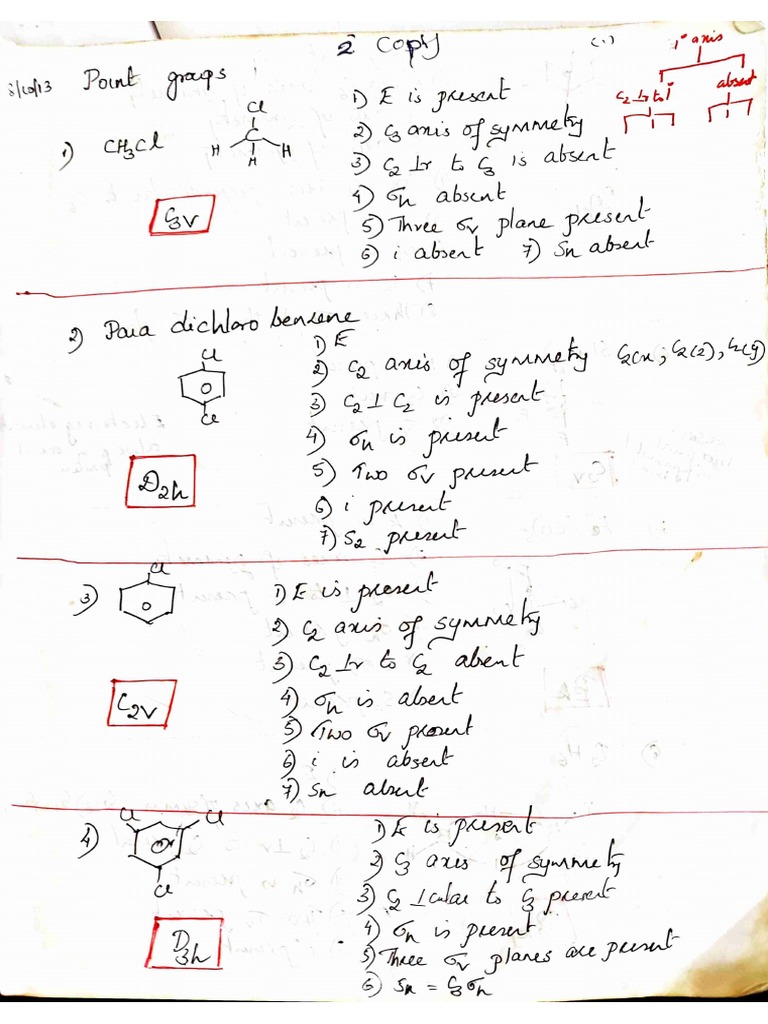 2 Copy
(1)
1° axis
C2 ⊥r to 1°
absent
8/10/13 Point groups
1) CH3Cl
Cl
C
H H H
C3V
1) E is present
2) C3 axis of symmetry
3) C2 ⊥r to C3 is absent
4) σh absent
5) Three σv plane present
6) i absent 7) Sn absent
2) Para dichloro benzene
Cl
Cl
D2h
1) E
2) C2 axis of symmetry C2(x), C2(z), C2(y)
3) C2 ⊥ C2 is present
4) σh is present
5) Two σv present
6) i present
7) S2 present
3)
Cl
C2V
1) E is present
2) C2 axis of symmetry
3) C2 ⊥r to C2 absent
4) σh is absent
5) Two σv present
6) i is absent
7) Sn absent
4)
Cl Cl
Cl
D3h
1) E is present
2) C3 axis of symmetry
3) C2 ⊥cular to C3 present
4) σh is present
5) Three σv planes are present
6) Sn = C3σh